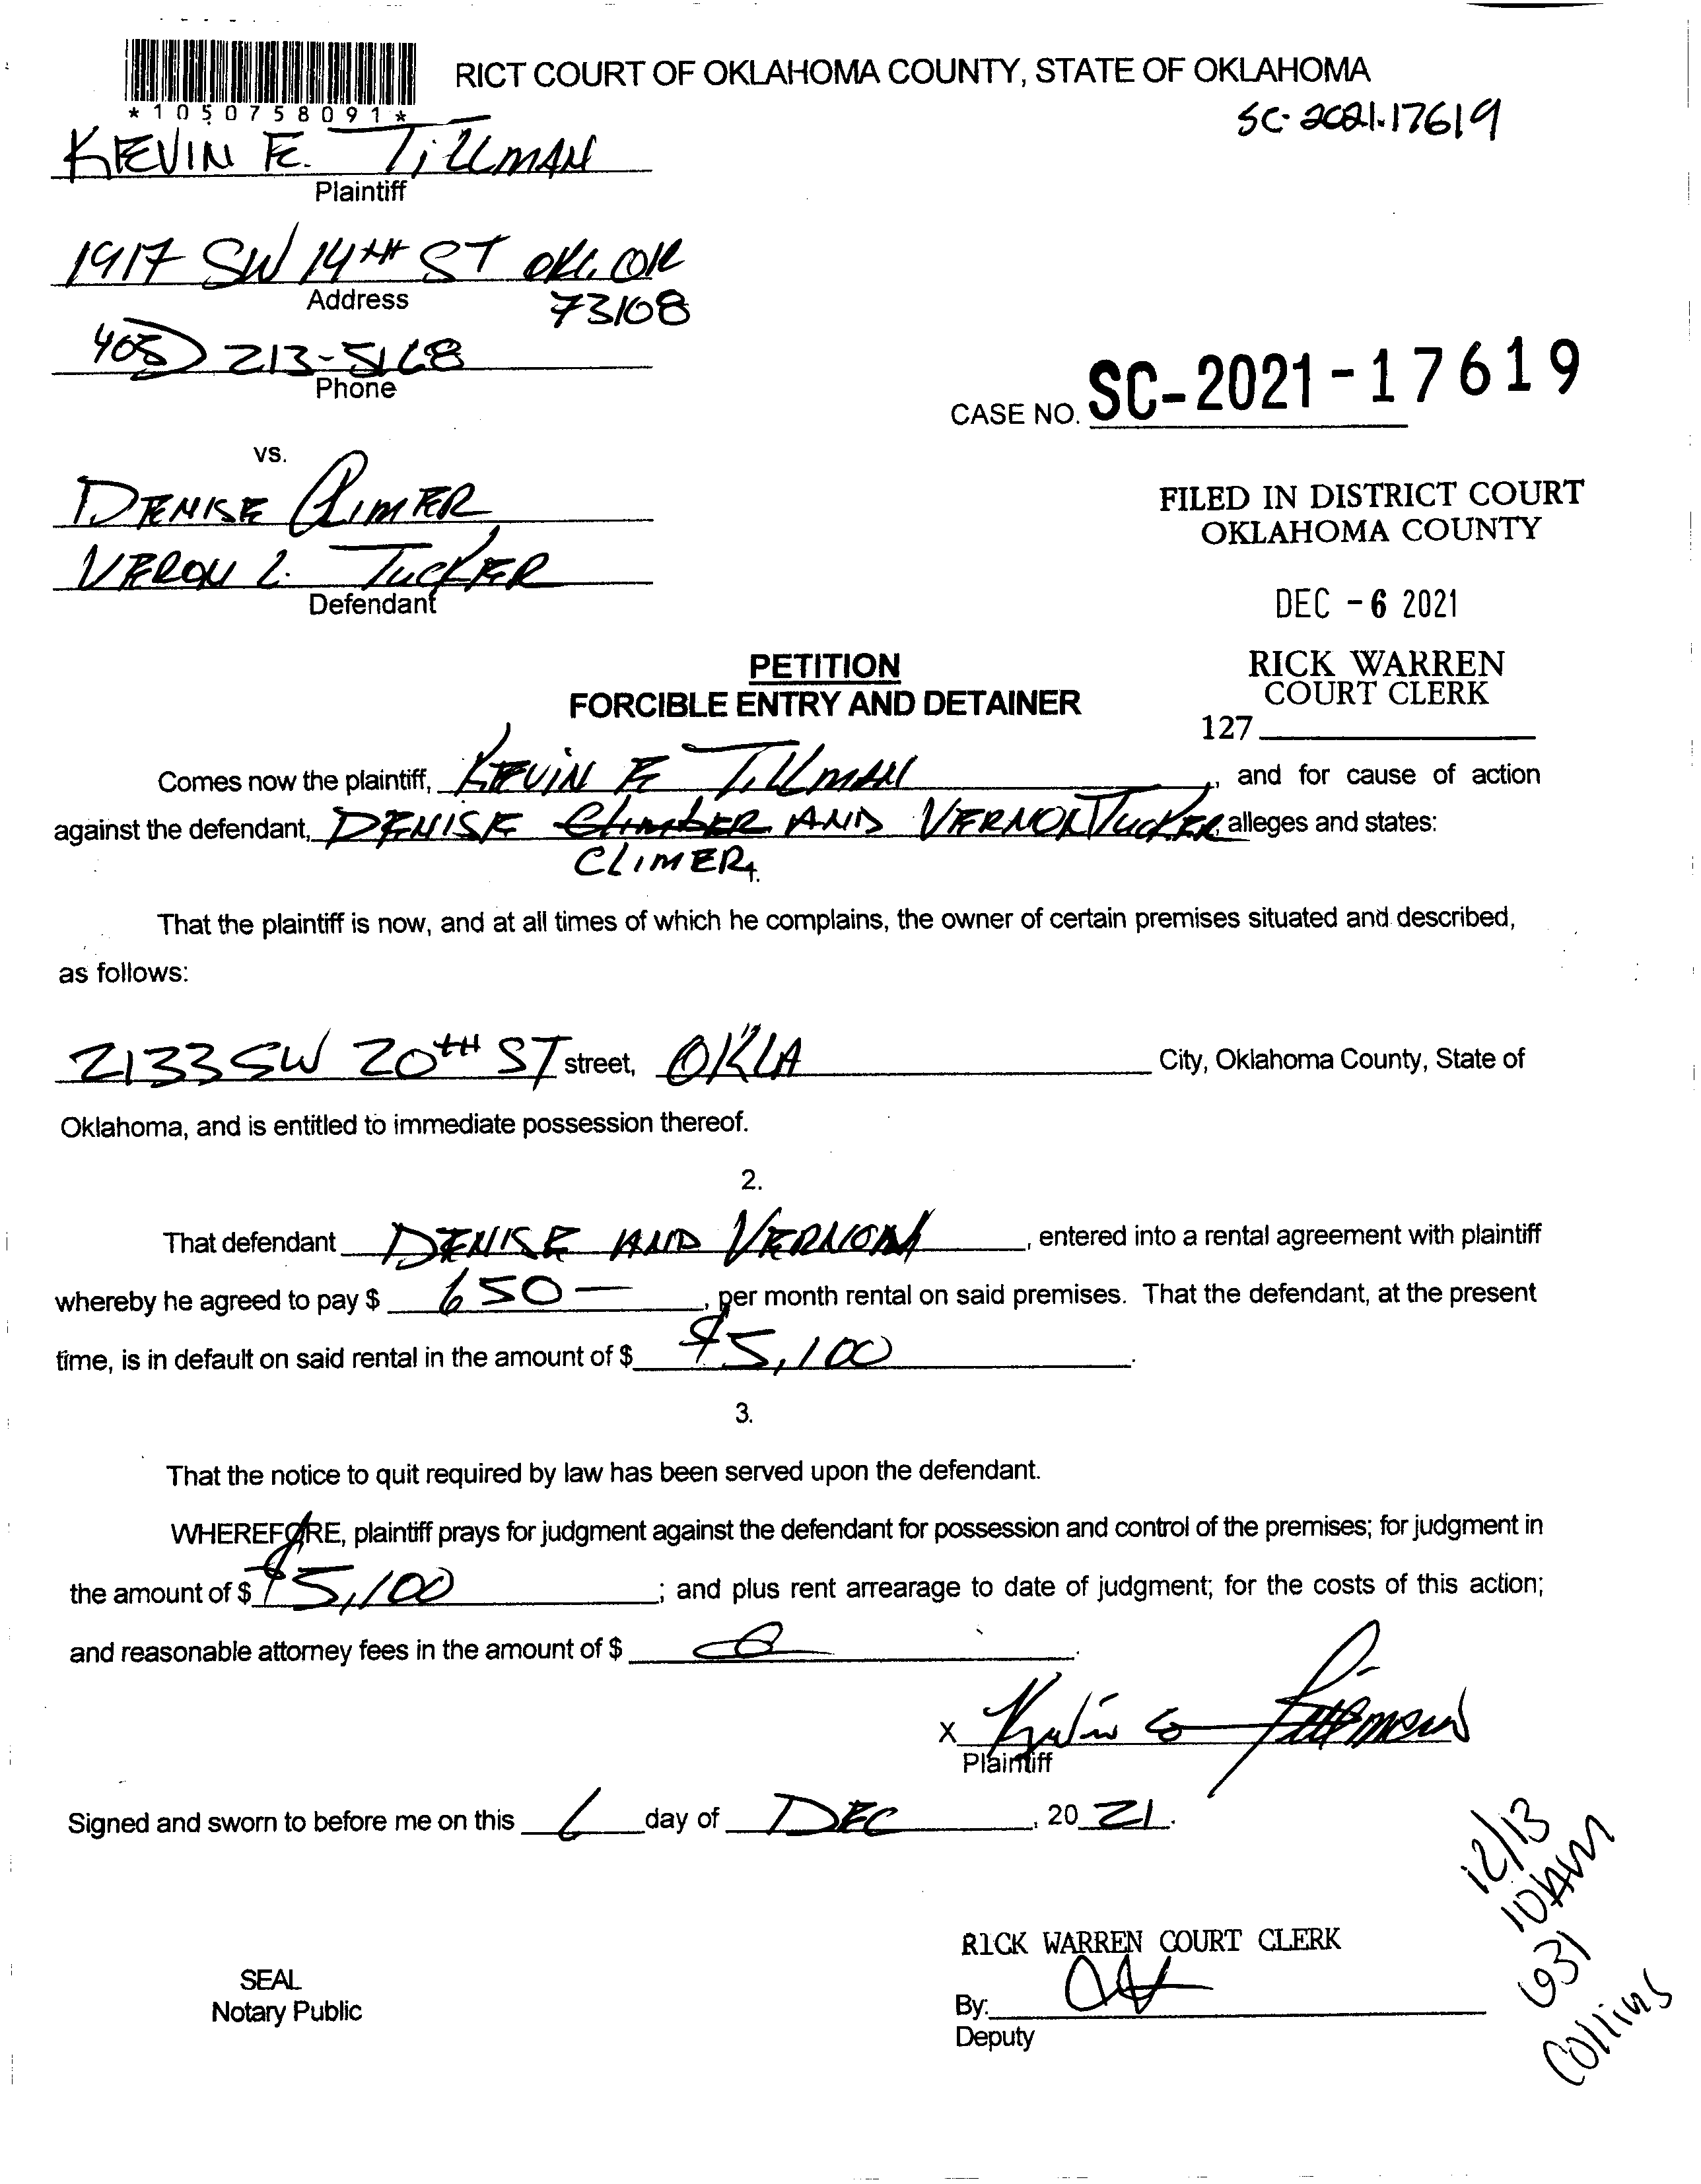 RICT COURT OF OKLAHOMA COUNTY, STATE OF OKLAHOMA
*1050758091*
SC-2021-17619
KEVIN E. TILLMAN
Plaintiff
1917 SW 14TH ST OKC, OK
Address
73108
405) 213-5168
Phone
CASE NO. SC-2021-17619
vs.
DENISE CLIMER
FILED IN DISTRICT COURT
OKLAHOMA COUNTY
VERON L. TUCKER
Defendant
DEC -6 2021
PETITION
FORCIBLE ENTRY AND DETAINER
RICK WARREN
COURT CLERK
127
Comes now the plaintiff, KEVIN E TILLMAN, and for cause of action
against the defendant, DENISE Climber AND VERNON TUCKER, alleges and states:
CLIMER
That the plaintiff is now, and at all times of which he complains, the owner of certain premises situated and described,
as follows:
2133 SW 20TH ST street, OKLA City, Oklahoma County, State of
Oklahoma, and is entitled to immediate possession thereof.
2.
That defendant DENISE AND VERNON, entered into a rental agreement with plaintiff
whereby he agreed to pay $ 650—, per month rental on said premises. That the defendant, at the present
time, is in default on said rental in the amount of $ $5,100.
3.
That the notice to quit required by law has been served upon the defendant.
WHEREFORE, plaintiff prays for judgment against the defendant for possession and control of the premises; for judgment in
the amount of $ $5,100; and plus rent arrearage to date of judgment; for the costs of this action;
and reasonable attorney fees in the amount of $ 0.
X Kevin E Tillman
Plaintiff
Signed and sworn to before me on this 6 day of DEC, 20 21.
12/13
10AM
631
Collins
RICK WARREN COURT CLERK
SEAL
Notary Public
By:
Deputy